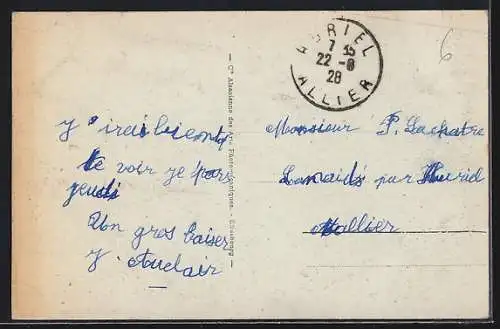 J'irai bientôt
te voir je pars
jeudi
Un gros baiser
Y. Auclair
Cie Alsacienne des Arts Photomécaniques. - Strasbourg
HURIEL
7 35
22 -8
28
ALLIER
6
Monsieur P.
Lamaids par Huriel
Allier